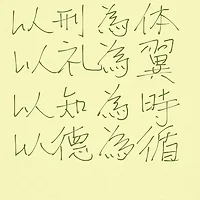 以刑為体
以礼為翼
以知為時
以德為循